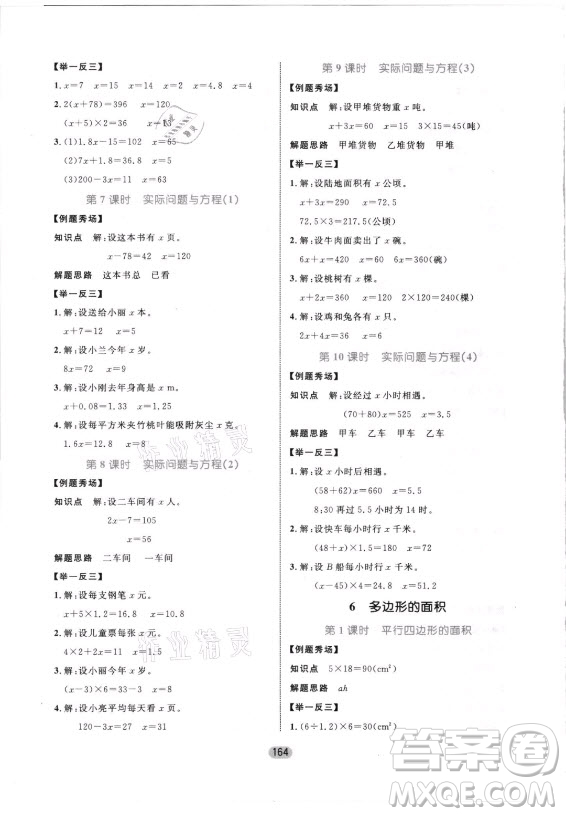 【举一反三】
1. x=7 x=15 x=14 x=2 x=15
2. 2(x+78)=396 x=120
(x+5)×2=36 x=13
3. (1)1.8x-15=102 x=65
(2)7x+12.6=36.8
(3)200-x=145
第 7 课时 实际问题与方程(1)
【例题秀场】
知识点 解:设这本书有 x 页。
x-78=42 x=120
解题思路 这本书总 已看
【举一反三】
1. 解:设送给小丽 x 本。
x+7=12 x=5
2. 解:设小兰今年 x 岁。
8x=72 x=9
3. 解:设小刚去年身高是 x m。
x+0.08=1.53 x=1.45
4. 解:设每平方米夹竹桃叶能吸附灰尘 x 克。
1.6x=12.8 x=8
第 8 课时 实际问题与方程(2)
【例题秀场】
知识点 解:设二车间有 x 人。
2x-7=105
x=56
解题思路 二车间 一车间
【举一反三】
1. 解:设每支钢笔 x 元。
x+5×1.2=16 x=10
2. 解:设儿童票每张 x 元。
4x+72=120 x=12
3. 解:设小丽今年 x 岁。
(x-2)×6=18 x=5
4. 解:设小亮平均每天看 x 页。
120-3x=21 x=33
第 9 课时 实际问题与方程(3)
【例题秀场】
知识点 解:设甲堆货物重 x 吨。
x+3x=60 x=15 3×15=45(吨)
解题思路 甲堆货物 乙堆货物 甲堆
【举一反三】
1. 解:设陆地面积有 x 公顷。
x+3x=290 x=72.5
72.5×3=217.5(公顷)
2. 解:设牛肉面卖了 x 碗。
6x+x=420 x=60 6x=360(碗)
3. 解:设桃树有 x 棵。
x+2x=360 x=120 2x=240(棵)
4. 解:设鸡和兔各有 x 只。
2x+4x=48 x=8
第 10 课时 实际问题与方程(4)
【例题秀场】
知识点 解:设经过 x 小时相遇。
(70+80)x=525 x=3.5
解题思路 甲车 乙车 甲车 乙车
【举一反三】
1. 解:设 x 小时后相遇。
(58+62)x=660 x=5.5
8:30 再过 5.5 小时为 14 时。
2. 解:设快车每小时行 x 千米。
(48+x)×2.5=270 x=60
3. 解:设 B 船每小时行 x 千米。
(x-45)×4=24.8 x=51.2
6 多边形的面积
第 1 课时 平行四边形的面积
【例题秀场】
知识点 5×18=90(cm²)
解题思路 ah
【举一反三】
1. (6÷1.2)×6=30(cm²)
164
作业精灵
作业精灵
答案圈
MXQE.COM